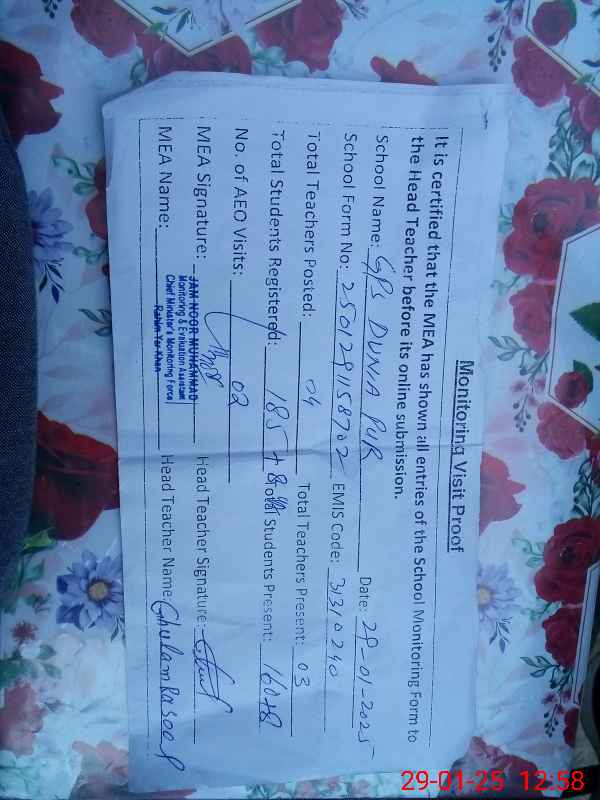 Monitoring Visit Proof
It is certified that the MEA has shown all entries of the School Monitoring Form to
the Head Teacher before its online submission.
School Name: GPS DUNIA PUR Date: 29-01-2025
School Form No: 250129158702 EMIS Code: 31310240
Total Teachers Posted: 04 Total Teachers Present: 03
Total Students Registered: 185+8 Total Students Present: 160+8
No. of AEO Visits: 02
MEA Signature: Head Teacher Signature:
MEA Name: JAM NOOR MUHAMMAD Head Teacher Name: Ghulam Rasool
Monitoring & Evaluation Assistant
Chief Minister's Monitoring Force
Rahim Yar Khan
29-01-25 12:58